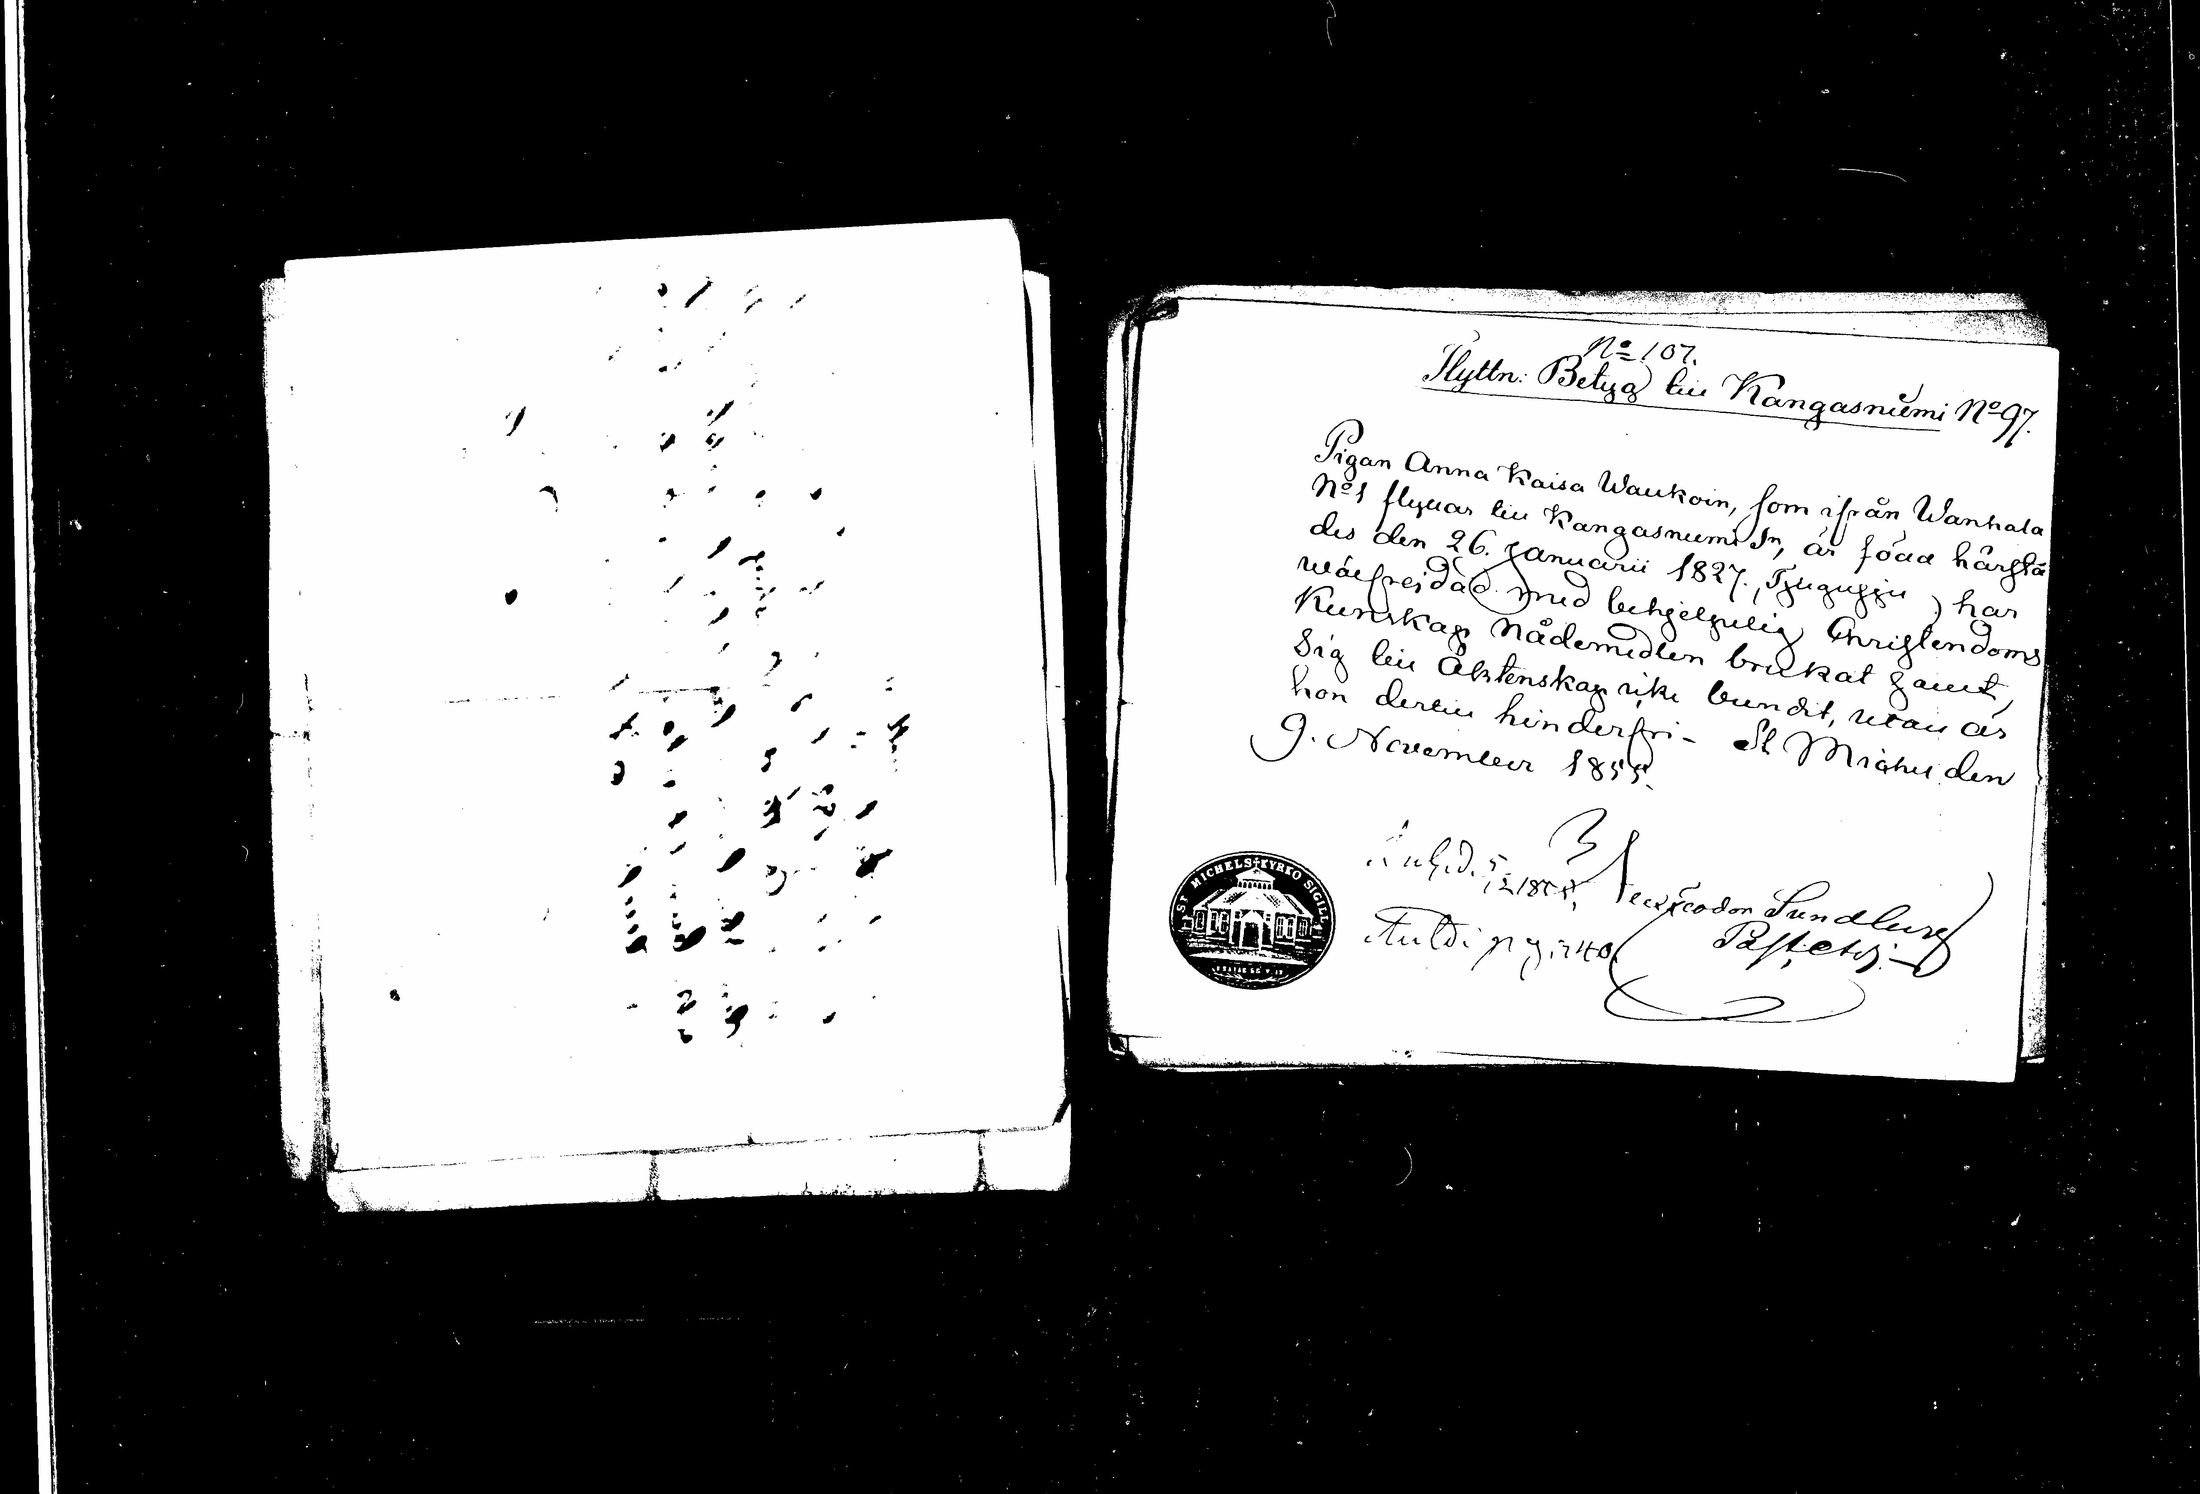 No 107.
Flyttn: Betyg till Kangasniemi No 97.
Pigan Anna Kaisa Waukoin, som ifrån Wanhala
No 1 flyttar till Kangasniemi Sn, är född härstä
des den 26. Januarii 1827., har
wälfrejdad med behjelpelig Christendoms
Kunskap Nådemedlen brukat samt,
Sig till Äktenskap icke bundit, utan är
hon dertill hinderfri - St Michel den
9. November 1855.
ST MICHELS KYRKO SIGILL
Theodor Sundberg
Past. Adj.